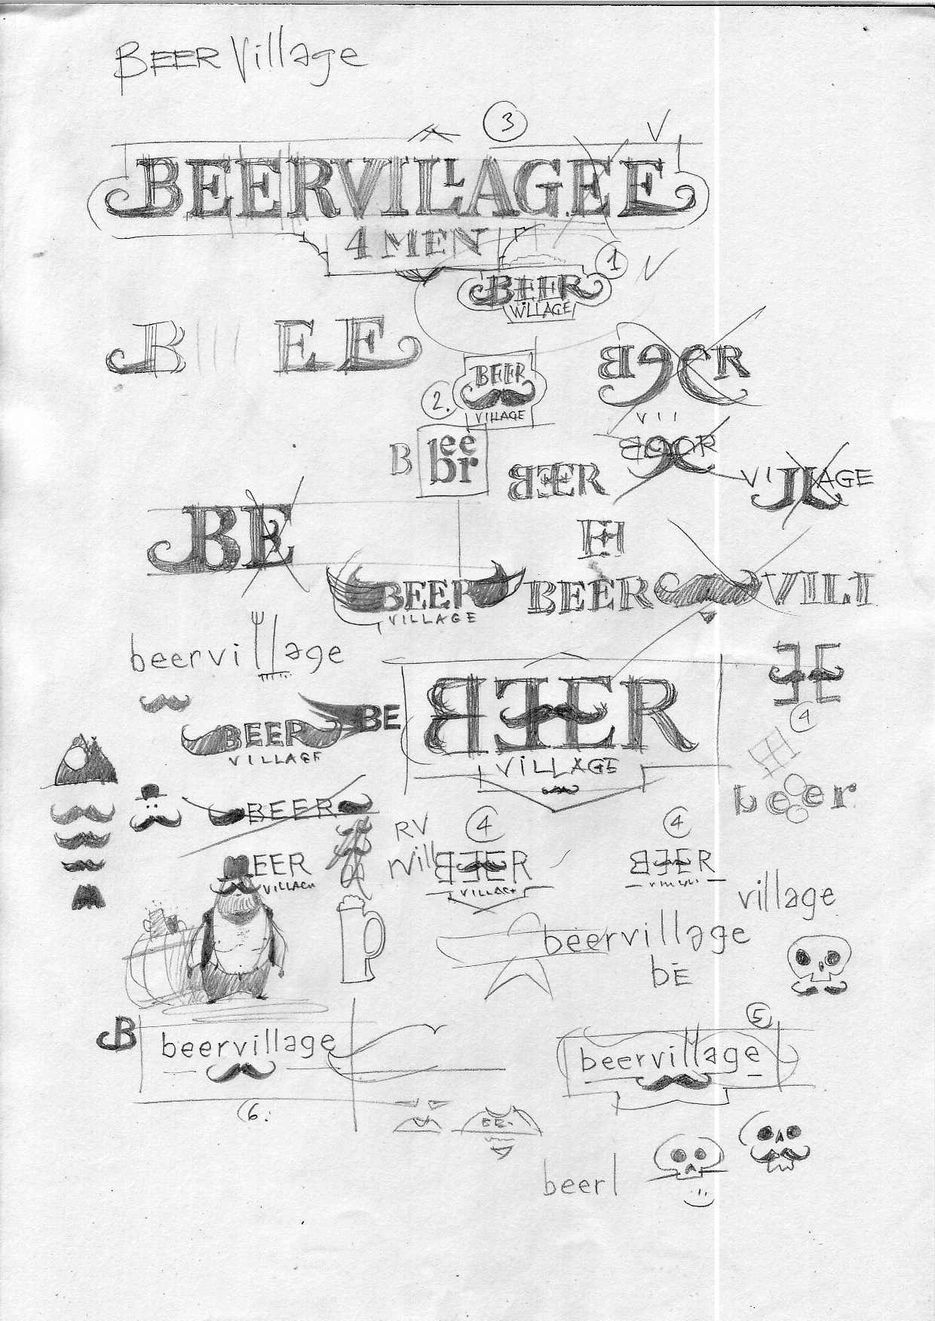 BEER Village
3
BEERVILLAGEE
4 MEN
1
BEER
VILLAGE
B EE
BEER
VILLAGE
2.
BEER
VII
BEER
B
beer
BEER
VILLAGE
BE
EE
BEER
VILLAGE
BEER VILI
beervillage
EE
4
BE
BEER
VILLAGE
BEER
VILLAGE
beer
BEER
RV
Vill
4
BEER
VILLAGE
4
BEER
EER
VILLAGE
village
beervillage
BE
B
beervillage
6.
5
beervillage
EE.
beerl